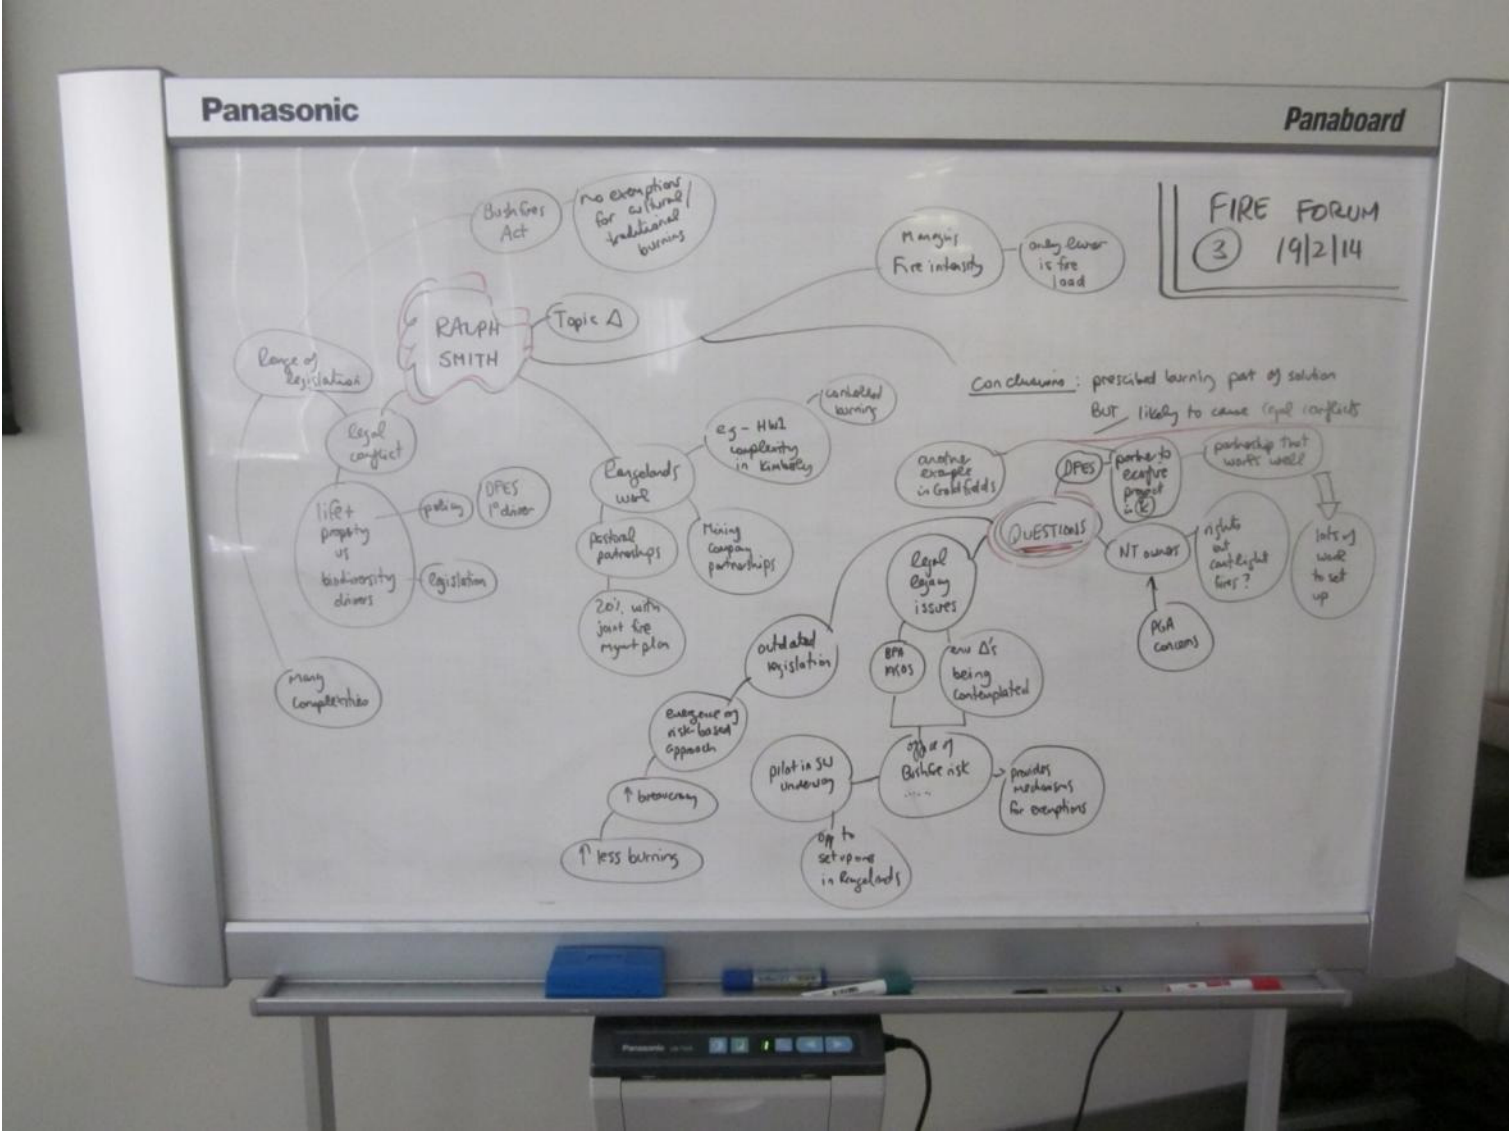 Panasonic
Panaboard
FIRE FORUM
3 19/2/14
Bushfires
Act
no exemptions
for cultural/
traditional
burning
Fire intensity
only lever
is fire
load
RALPH
SMITH
Topic Δ
Range of
legislation
legal
conflict
life +
property
vs
biodiversity
drivers
policy
DFES
1° driver
legislation
many
complexities
Rangelands
work
eg - HWI
complexity
in Kimberley
controlled
burning
pastoral
partnerships
Mining
company
partnerships
20% with
joint fire
mgmt plan
Conclusions : prescribed burning part of solution
BUT likely to cause legal conflicts
another
example
in Goldfields
DFES
partner to
ecofire
project
in K
partnership that
works well
lots of
work
to set
up
QUESTIONS
NT owners
rights
but
can't light
fires?
PGA
concerns
legal
legacy
issues
BPA
env Δ's
being
contemplated
office of
Bushfire risk
.....
provides
mechanisms
for exemptions
pilot in SW
underway
opp to
set up one
in Rangelands
outdated
legislation
emergence of
risk-based
approach
↑ breaucracy
↑ less burning
Panasonic